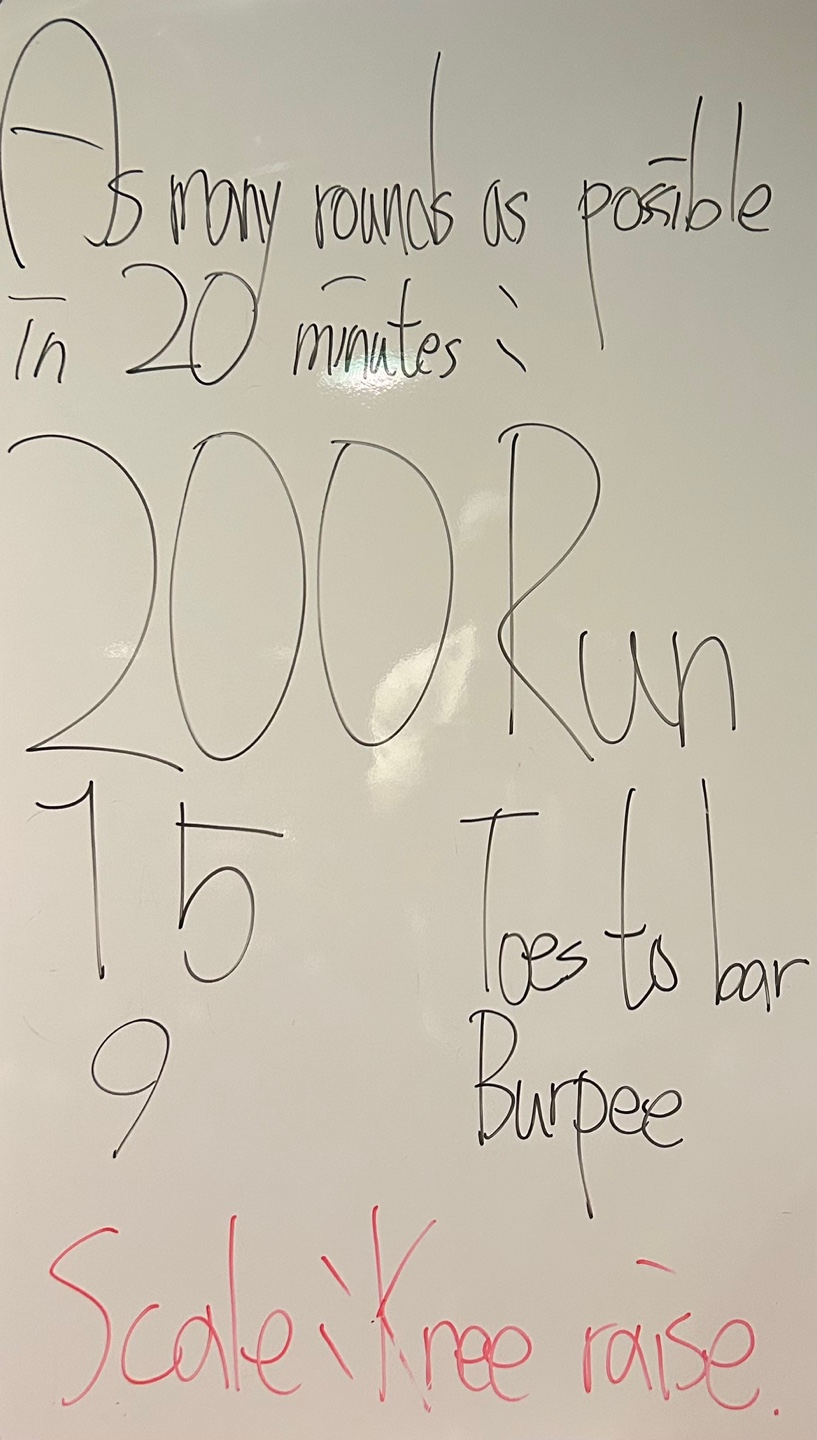 As many rounds as possible
in 20 minutes:
200 Run
15 Toes to bar
9 Burpee
Scale: Knee raise.